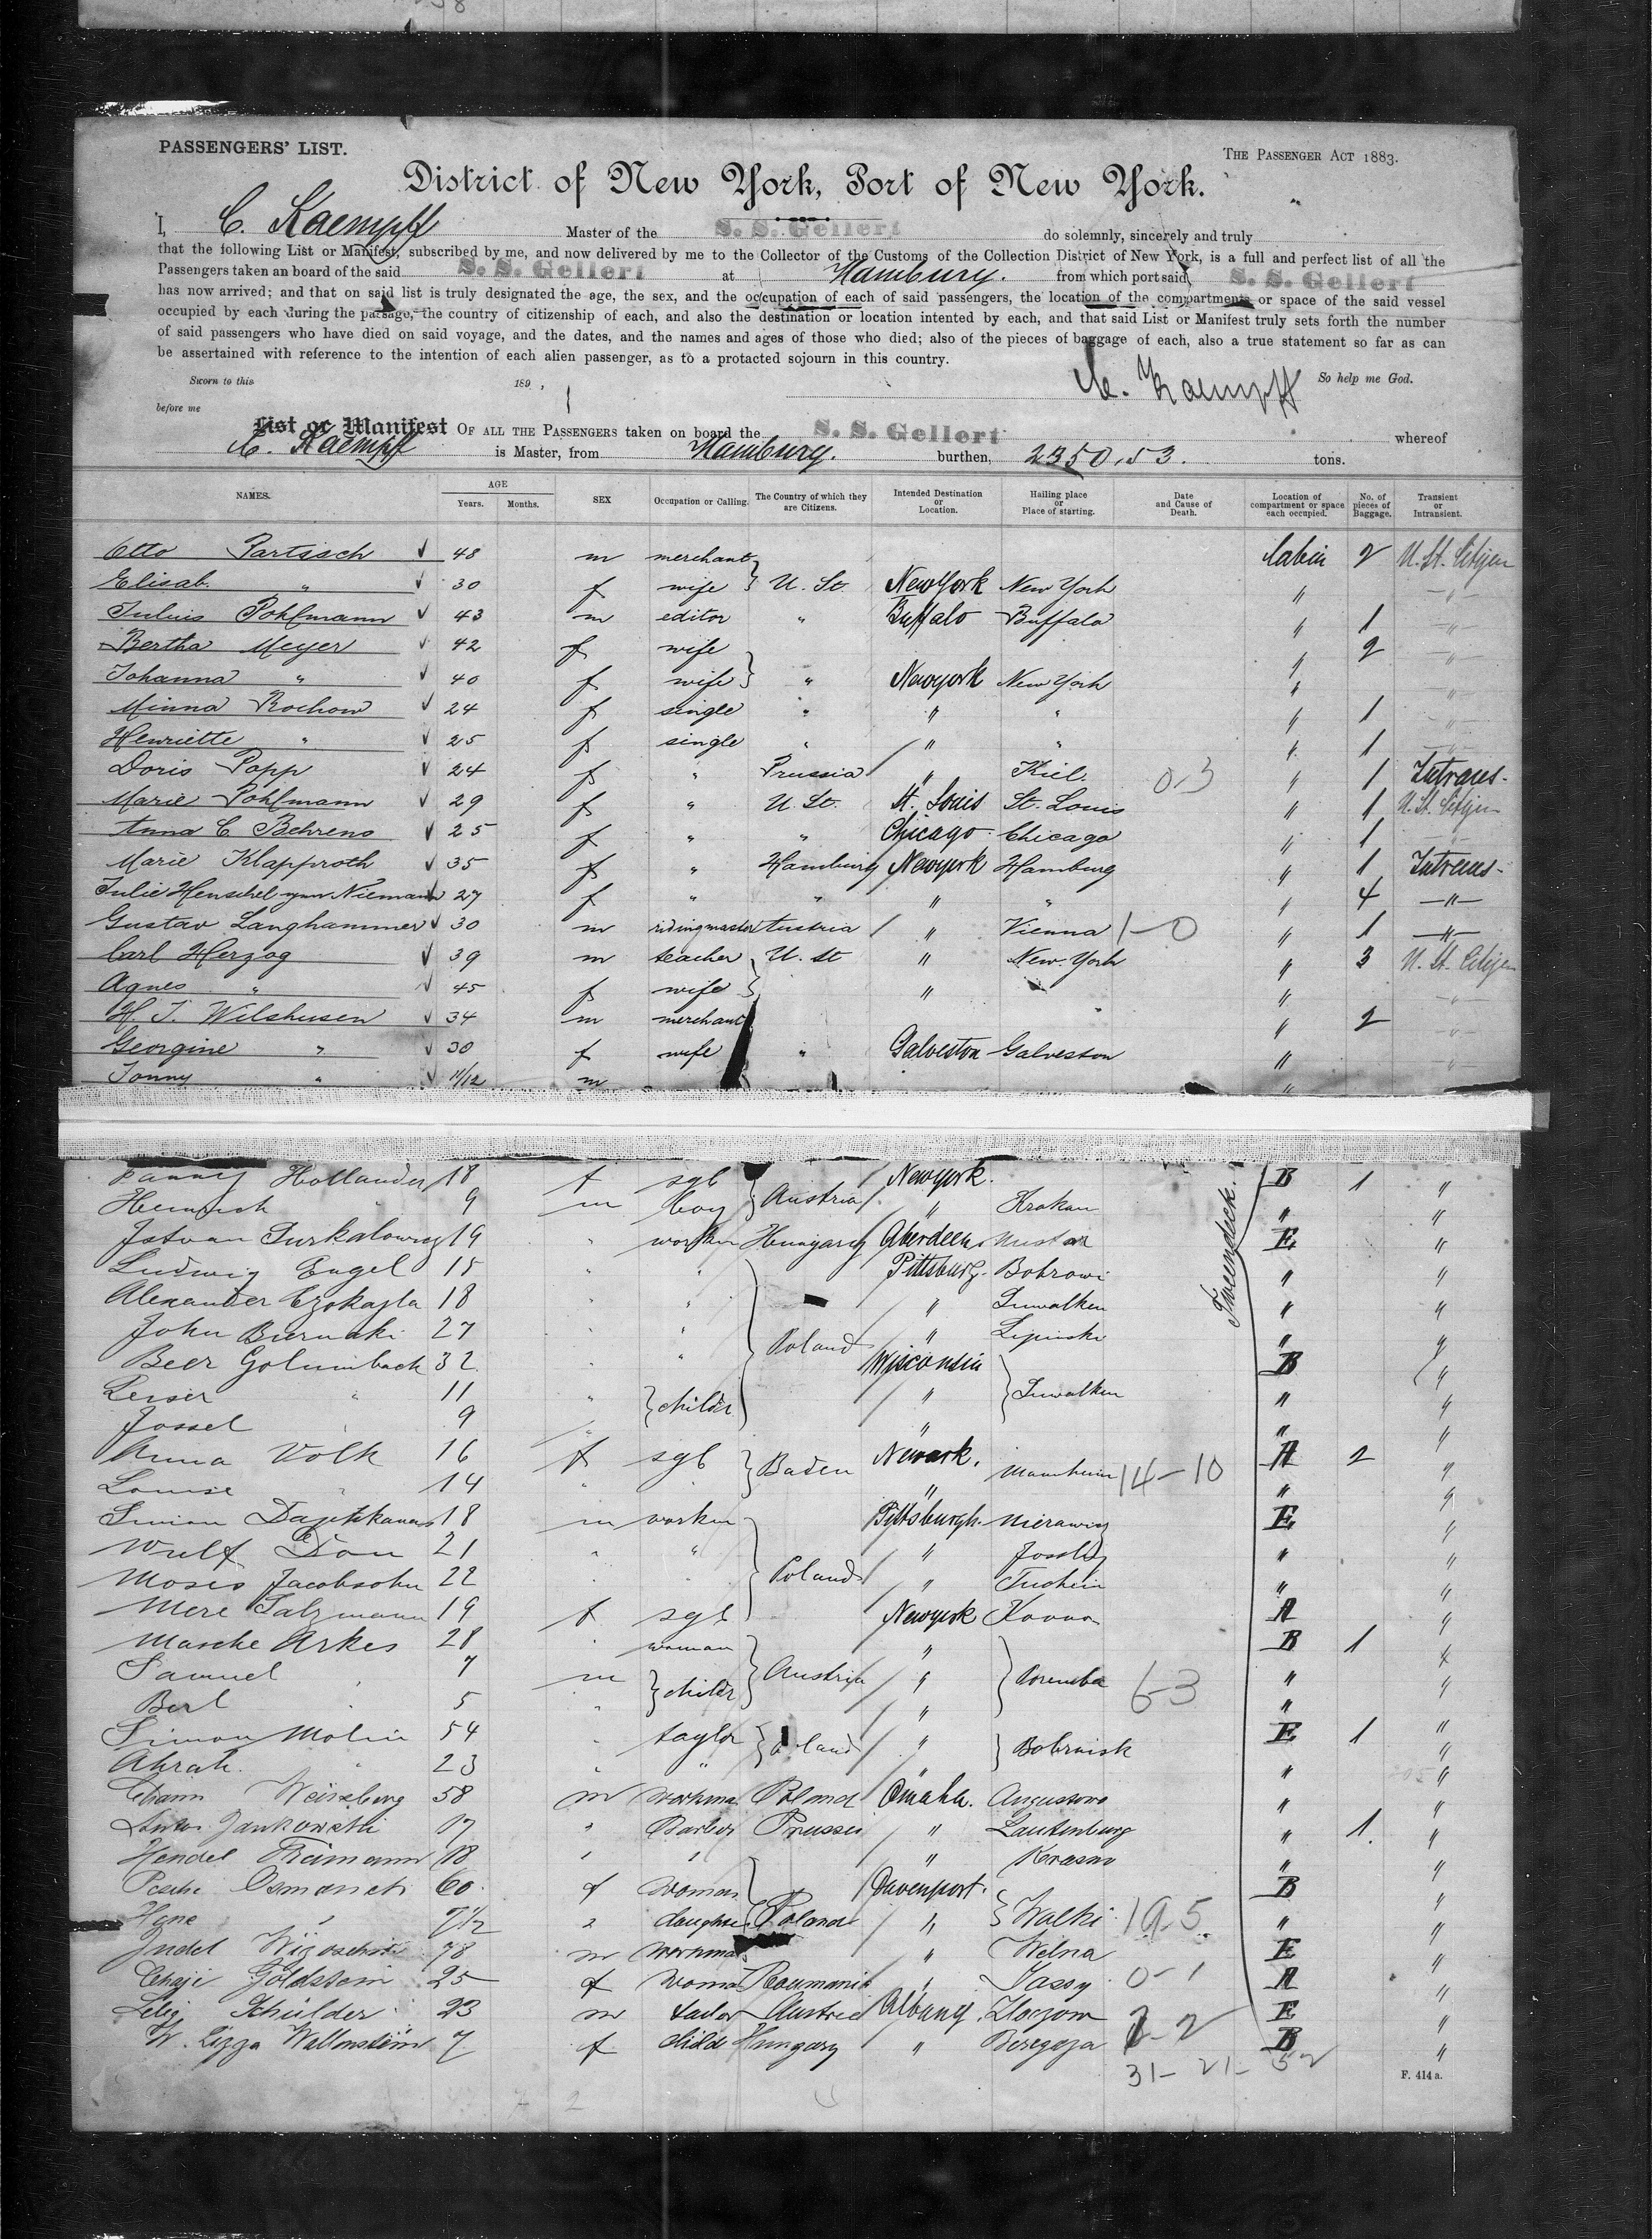 PASSENGERS' LIST.
THE PASSENGER ACT 1883.
District of New York, Port of New York.
I, C. Kaempff Master of the S. S. Gellert do solemnly, sincerely and truly
that the following List or Manifest, subscribed by me, and now delivered by me to the Collector of the Customs of the Collection District of New York, is a full and perfect list of all the
Passengers taken an board of the said S. S. Gellert at Hamburg. from which port said S. S. Gellert
has now arrived; and that on said list is truly designated the age, the sex, and the occupation of each of said passengers, the location of the compartments or space of the said vessel
occupied by each during the passage, the country of citizenship of each, and also the destination or location intented by each, and that said List or Manifest truly sets forth the number
of said passengers who have died on said voyage, and the dates, and the names and ages of those who died; also of the pieces of baggage of each, also a true statement so far as can
be assertained with reference to the intention of each alien passenger, as to a protacted sojourn in this country.
Sworn to this 189 , C. Kaempff So help me God.
before me
List or Manifest OF ALL THE PASSENGERS taken on board the S. S. Gellert whereof
C. Kaempff is Master, from Hamburg. burthen, 2350,53. tons.
NAMES. AGE Years. Months. SEX Occupation or Calling. The Country of which they are Citizens. Intended Destination or Location. Hailing place or Place of starting. Date and Cause of Death. Location of compartment or space each occupied. No. of pieces of Baggage. Transient or Intransient.
Otto Partisch 48 m merchant Cabin 2 U. St. Citizen
Elisab. " 30 f wife U. St. New York New York " "
Julius Pohlmann 43 m editor " Buffalo Buffalo " 1 "
Bertha Meyer 42 f wife " 2 "
Johanna " 40 f wife " Newyork New York " "
Minna Rochow 24 f single " " " " 1 "
Henriette " 25 f single " " " " 1 "
Doris Popp 24 f " Prussia " Kiel. 0-3 " 1 Intrans-
Marie Pohlmann 29 f " U. St. St. Louis St. Louis " 1 U. St. Citizen
Anna C. Behrens 25 f " " Chicago Chicago " 1 "
Marie Klapproth 35 f " Hamburg Newyork Hamburg " 1 Intrans-
Julie Henschel gnn Niemann 27 f " " " " " 4 "
Gustav Langhammer 30 m ridingmaster Austria " Vienna 1-0 " 1 "
Carl Herzog 39 m teacher U. St " New-York " 3 U. St. Citizen
Agnes " 45 f wife " " "
H. J. Wilshusen 34 m merchant " 2 "
Georgine " 30 f wife " Galveston Galveston " "
Jonny " 11/12 m "
Fanny Hollander 18 f sgl Newyork. B 1 "
Heinrich 9 m boy Austria " Krakau " "
Istvan 19 " worker Hungary Aberdeen E "
Ludwig Engel 15 " " Pittsburg. Bobrowi " "
Alexander 18 " " " Suwalken " "
John 27 " " Poland " Lipinski " "
Beer Golumback 32 " " Wisconsin B "
Leiser " 11 " childr " Suwalken " "
Jossel 9 " " " "
Anna Volk 16 f sgl Baden Newark. Mannheim 14-10 A 2 "
Louise " 14 " " " "
Simon 18 m worker Pittsburgh. E "
Wulf Don 21 " " " " "
Moses Jacobsohn 22 " " Poland " " "
Mere Salzmann 19 f sgl Newyork Kovno A "
Masche Arkes 28 " woman " B 1 "
Samuel 7 m childr Austria " 6-3 " "
Berl 5 " " " "
Simon Molin 54 " taylor Poland " Bobruisk E 1 "
Abrah. " 23 " " " "
Chaim Weinberg 58 m workman Poland Omaha. Augustowo " "
Jankowski 17 " Barber Prussia " Lautenburg " 1. "
Hendel 18 " " " Krasno " "
60 f woman Davenport. B "
" daughter Poland " Walki 19-5 " "
Judel m workman " Wilna E "
Goldstein 25 f woman Roumania " Jassy 0-1 A "
Schulder 23 m tailor Austria Albany. Zloczow E "
W. Lizza Wallenstein 7 f child Hungary " 2-2 B "
31- 21- 52
F. 414 a.
Tweendeck.